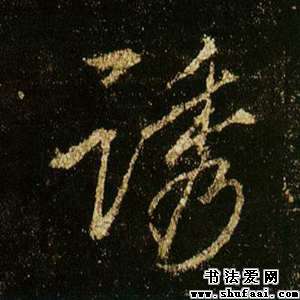 诱
书法爱网
www.shufaai.com